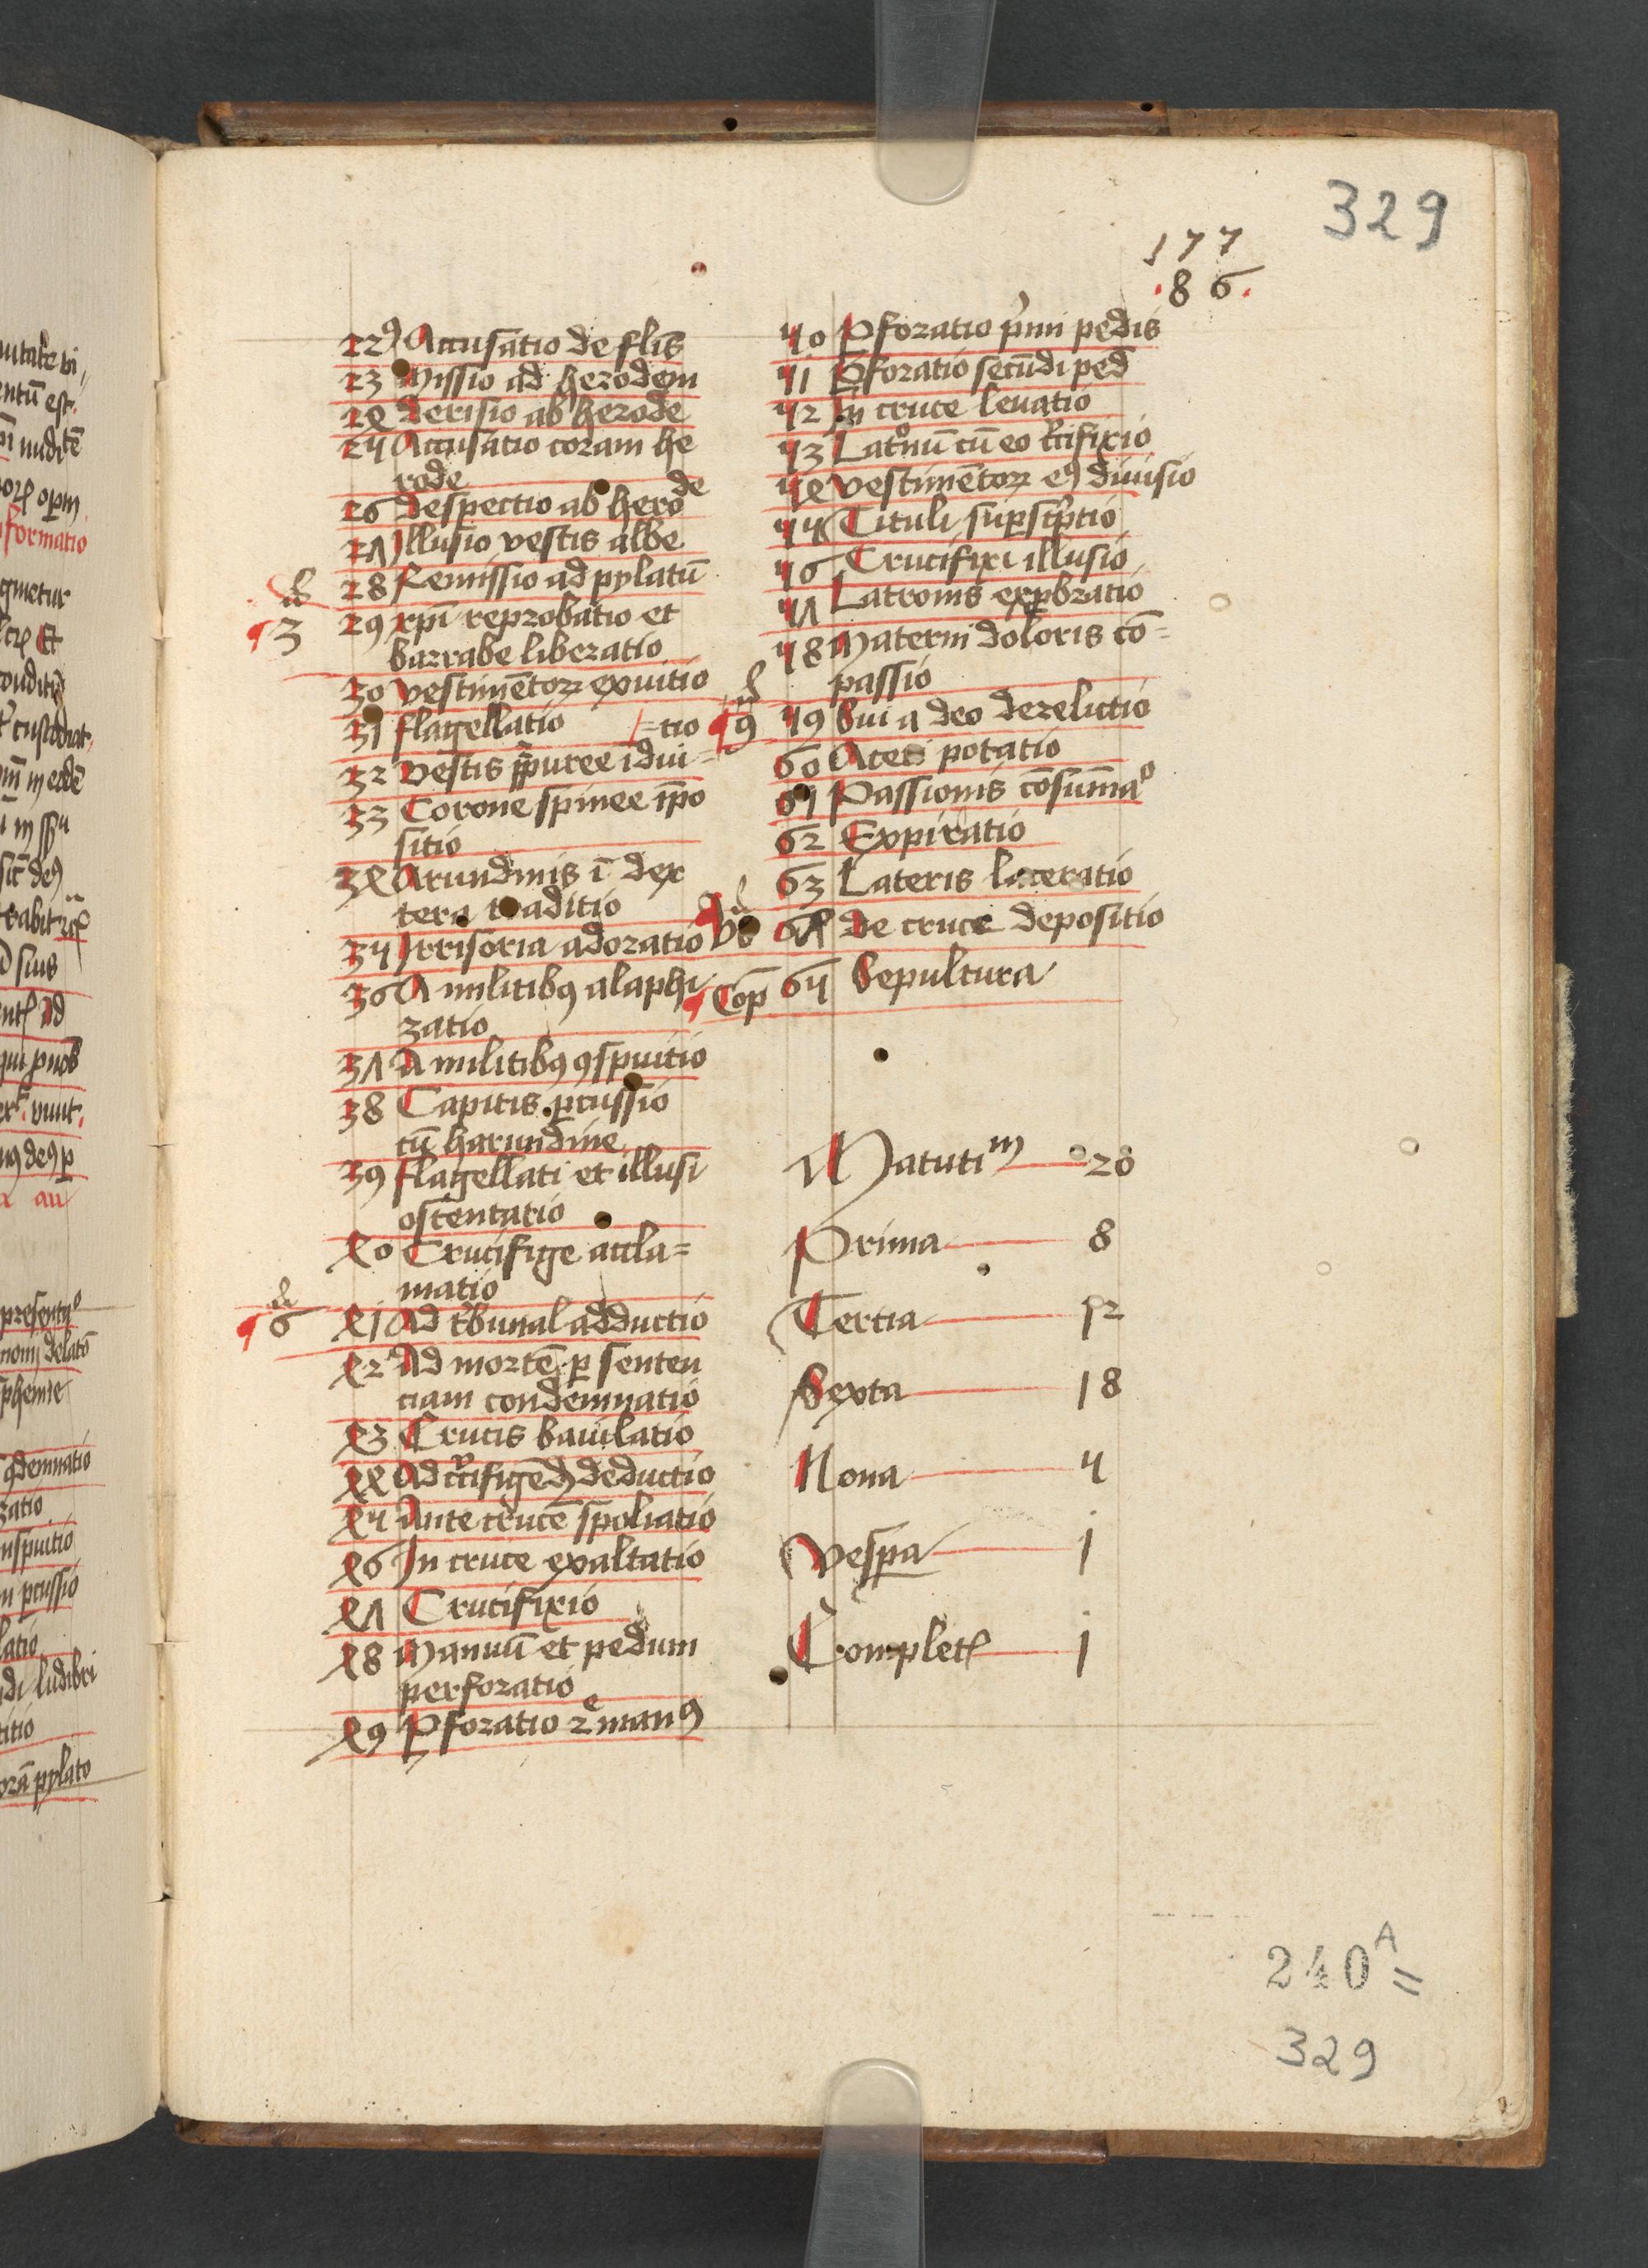 329
177
.86.
22 Accusatio de flis
23 Missio ad herodem
24 Derisio ab herode
25 Accusatio coram he
rode
26 despectio ab herode
27 Illusio vestis albe
28 Remissio ad pylatū
3
29 xpi reprobatio et
barrabe liberatio
30 vestimētorꝝ exuitio
31 flagellatio
32 vestis ppuree idui=
=tio
33 Corone spinee īpo
sitio
34 Arundinis ī dex
tera traditio
35 Irrisoria adoratio
36 A militibꝰ alaphi
zatio
37 A militibꝰ ꝯspuitio
38 Capitis pcussio
cū harundine
39 flagellati et illusi
ostentatio
40 Crucifige accla=
matio
6
41 Ad tbunal adductio
42 Ad mortē p senten
ciam condemnatio
43 Crucis baiulatio
44 Ad crcifigēdꝫ deductio
45 Ante crucē spoliatio
46 In cruce exaltatio
47 Crucifixio
48 Manuū et pedum
perforatio
49 Pforatio 2e manꝰ
50 Pforatio pmi pedis
51 Pforatio secūdi ped
52 In cruce leuatio
53 Latonū cū eo crcifixio
54 vestimētorꝝ eꝰ diuisio
55 Tituli supscptio
56 Crucifixi illusio
57 Latronis expbratio
58 Materni doloris cō=
passio
9
59 Sui a deo derelictio
60 Aceti potatio
61 Passionis cōsūmao
62 Expiratio
63 Lateris laceratio
64 de cruce depositio
Cōp 65 Sepultura
Matutim 20
Prima 8
Tertia 12
Sexta 18
Nona 5
Vespa 1
Complet 1
240A=
329